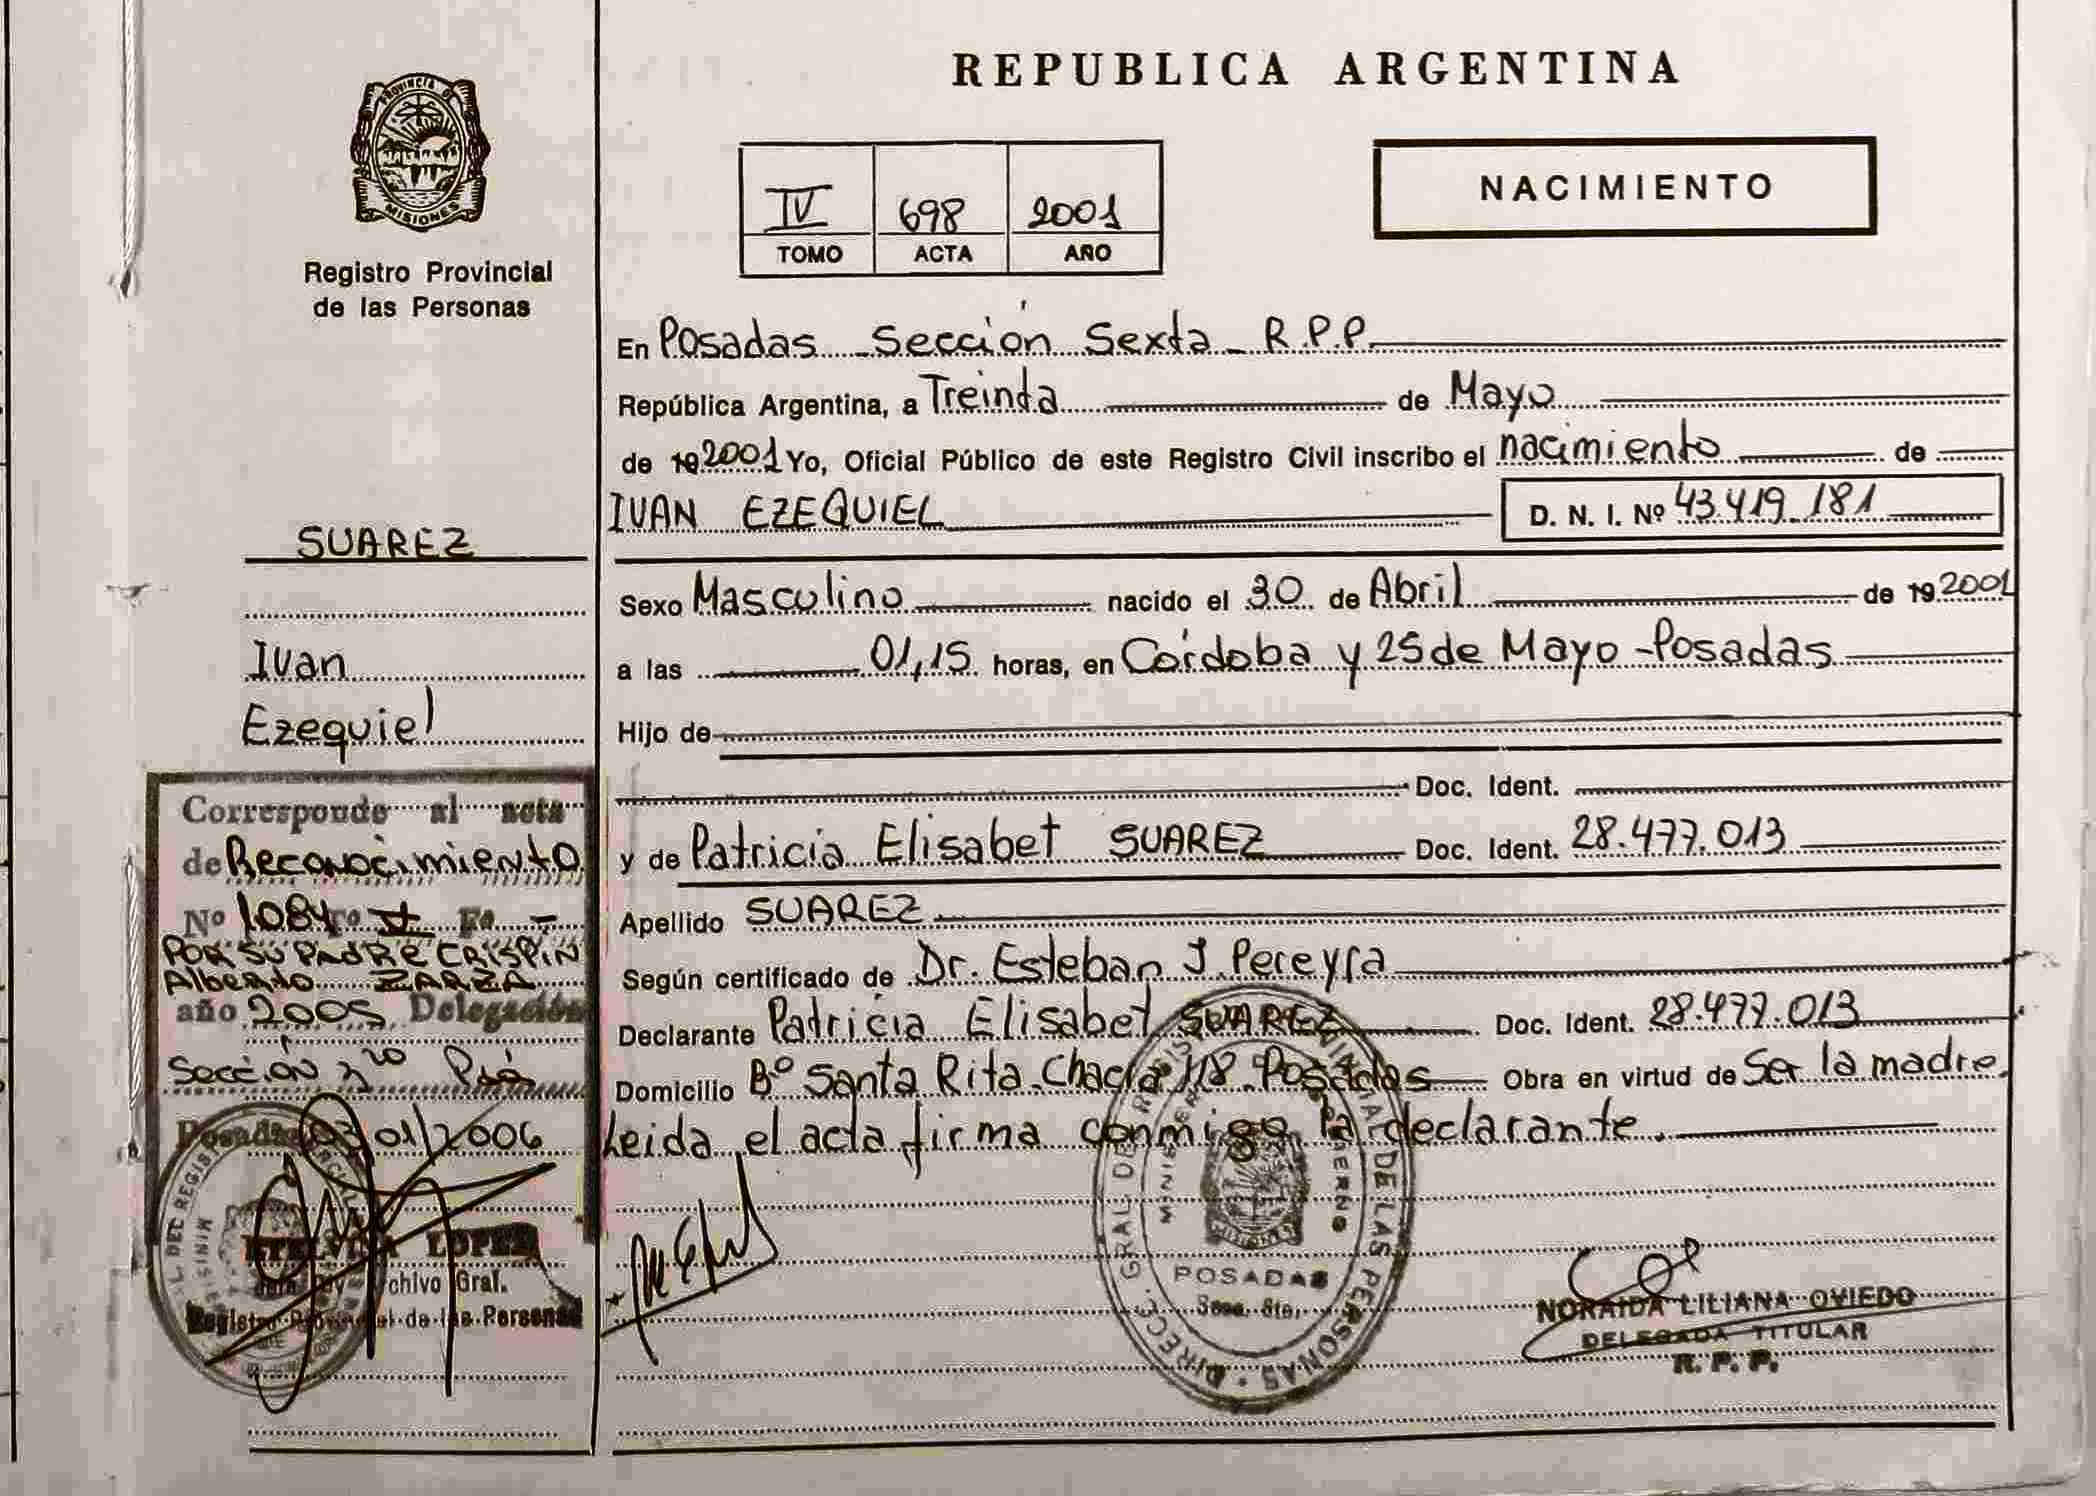 REPUBLICA ARGENTINA
PROVINCIA DE
MISIONES
Registro Provincial
de las Personas
IV 698 2001
TOMO ACTA AÑO
NACIMIENTO
En Posadas Sección Sexta R.P.P.
República Argentina, a Treinta de Mayo
de 19 2001 Yo, Oficial Público de este Registro Civil inscribo el nacimiento de
IVAN EZEQUIEL D. N. I. Nº 43.419.181
Sexo Masculino nacido el 30 de Abril de 19 2001
a las 01,15 horas, en Córdoba y 25 de Mayo - Posadas
Hijo de
Doc. Ident.
y de Patricia Elisabet SUAREZ Doc. Ident. 28.477.013
Apellido SUAREZ
Según certificado de Dr. Esteban J. Pereyra
Declarante Patricia Elisabet SUAREZ Doc. Ident. 28.477.013
Domicilio Bº Santa Rita. Chacra 118. Posadas Obra en virtud de Ser la madre.
Leida el acta firma conmigo la declarante.
SUAREZ
Ivan
Ezequiel
Corresponde al acta
de Reconocimiento
Nº 1084 Tº Fº -
POR SU PADRE CRISPIN
Alberto ZARZA
año 2005 Delegación
Sección
Posadas 03/01/2006
LOPEZ
Archivo Gral.
Registro Provincial de las Personas
DIRECC. GRAL DEL REGISTRO PROVINCIAL DE LAS PERSONAS
POSADAS
Secc. 6ta.
NORAIDA LILIANA OVIEDO
DELEGADA TITULAR
R. P. P.